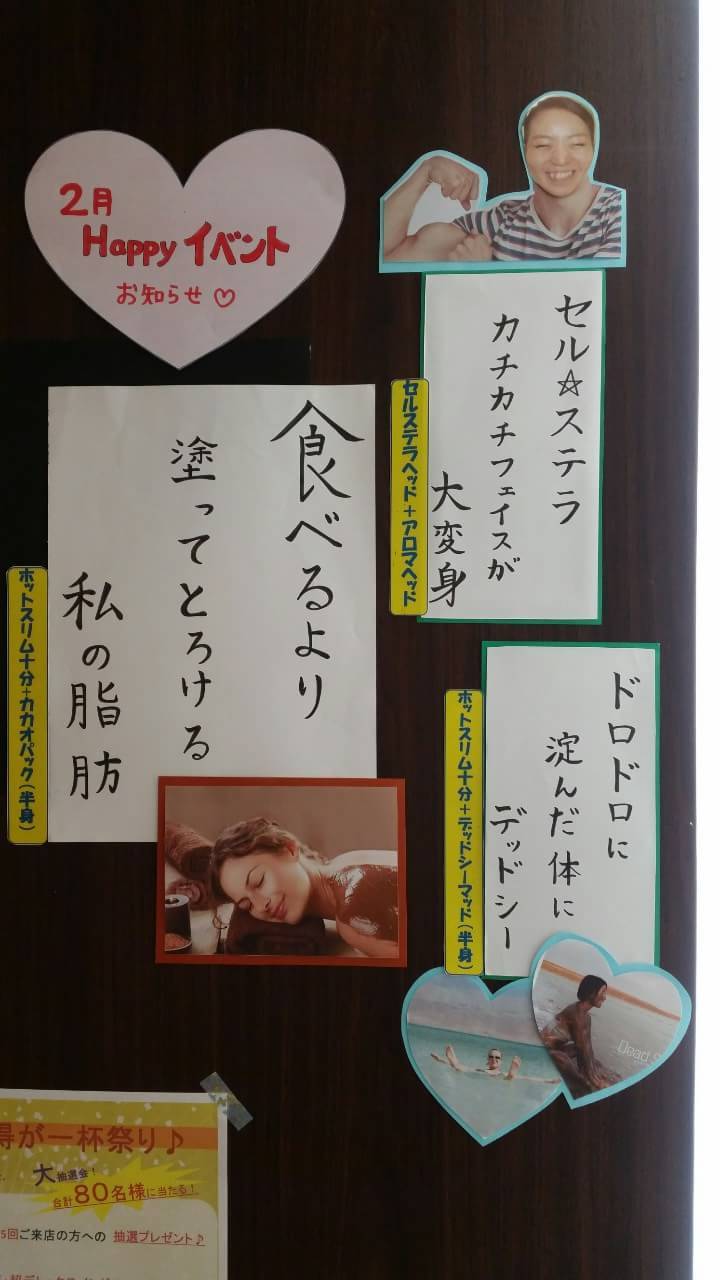 2月
Happy イベント
お知らせ♡
セル☆ステラ
カチカチフェイスが
大変身
セルステラヘッド+アロマヘッド
食べるより
塗ってとろける
私の脂肪
ホットスリム十分+カカオパック(半身)
ドロドロに
淀んだ体に
デッドシー
ホットスリム十分+デッドシーマッド(半身)
Dead S
得が一杯祭り♪
大抽選会!
合計80名様に当たる!
5回ご来店の方への 抽選プレゼント♪